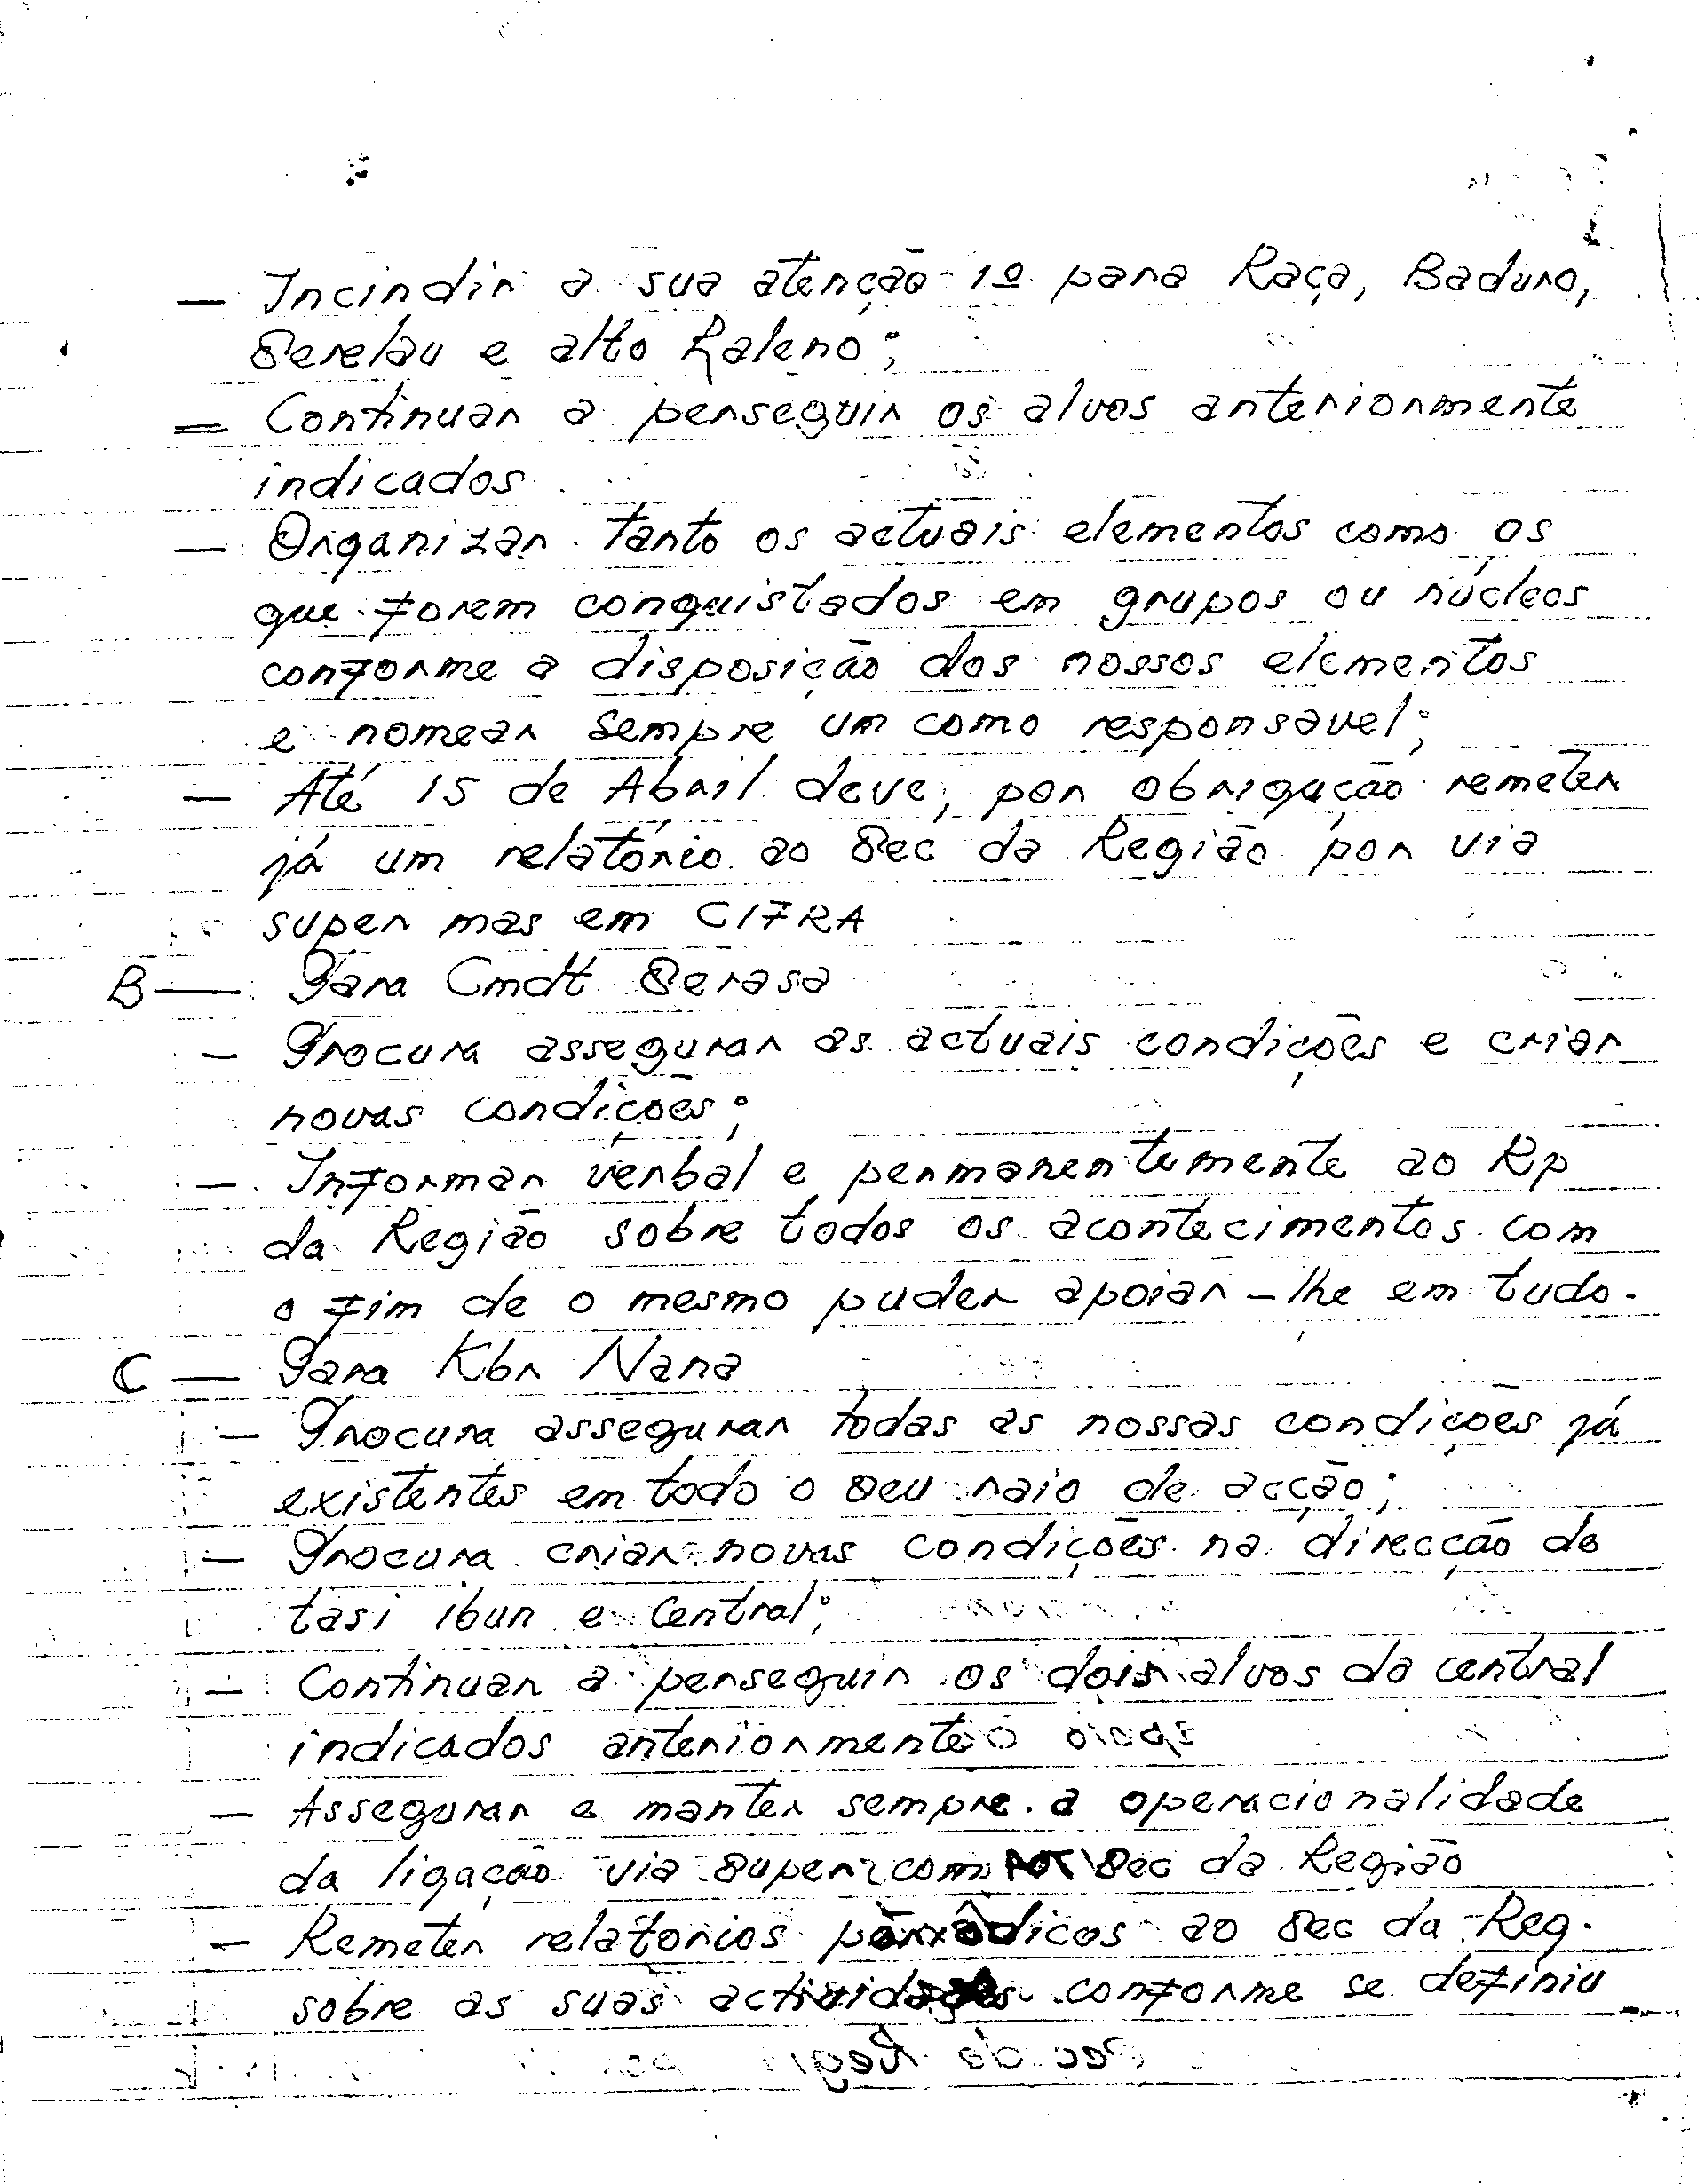 — Incindir a sua atenção 1º para Raça, Baduro,
Serelau e alto Laleno;
— Continuar a perseguir os alvos anteriormente
indicados
— Organizar tanto os actuais elementos como os
que forem conquistados em grupos ou núcleos
conforme a disposição dos nossos elementos
e nomear sempre um como responsavel;
— Até 15 de Abril deve, por obrigação remeter
já um relatório ao Sec da Região por via
super mas em CIFRA
B — Para Cmdt Serasa
— Procura assegurar as actuais condições e criar
novas condições;
— Informar verbal e permanentemente ao Rp
da Região sobre todos os acontecimentos com
o fim de o mesmo puder apoiar-lhe em tudo.
C — Para Kbr Nana
— Procura assegurar todas as nossas condições já
existentes em todo o seu raio de acção;
— Procura criar novas condições na direcção do
tasi ibun e Central;
— Continuar a perseguir os dois alvos do central
indicados anteriormente
— Assegurar e manter sempre a operacionalidade
da ligação via super com Sec da Região
— Remeter relatorios periódicos ao Sec da Reg.
sobre as suas actividades conforme se definiu